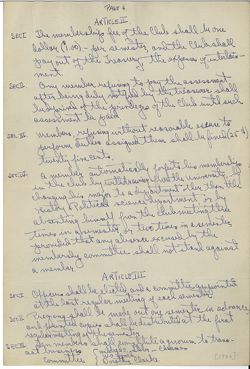 Page 6
ARTICLE II
SEC I. The membership fee of the Club shall be one
dollar ($1.00) per semester, and the Club shall
pay out of the Treasury the expenses of
ment.
SEC II. Any member refusing to pay the assessment
after being duly notified by the treasurer shall
be deprived of the privileges of the Club until such
assessment be paid.
SEC III. Members refusing without reasonable excuse to
perform duties assigned them shall be fined (25¢)
twenty five cents.
SEC IV. A member automatically forfeits his membership
in the club by withdrawing from the University, by
changing his major to a department other than the
Political science department or by
absenting himself from the club meeting three
times in a semester or two times in succession
provided that any absence excused by the
membership committee shall not stand against
a member.
ARTICLE III
SEC I. Officers shall be elected and a committee appointed
at the last regular meeting of each semester.
SEC II. Program shall be made out one semester in advance
and copies shall be distributed at the first
regular meeting
SEC III. members shall constitute a quorum to trans-
act business
Committee
Clarke